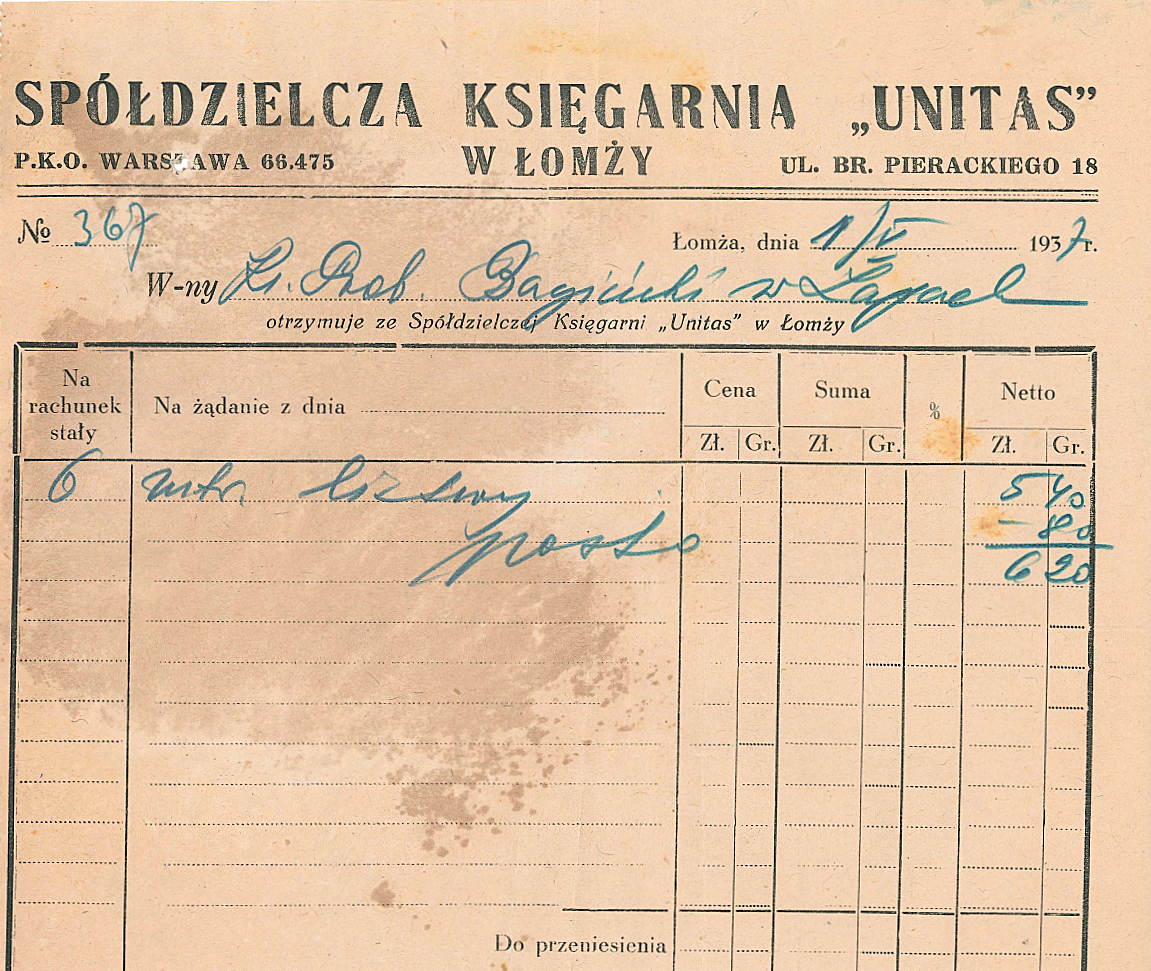 SPÓŁDZIELCZA KSIĘGARNIA „UNITAS”
P.K.O. WARSZAWA 66.475 W ŁOMŻY UL. BR. PIERACKIEGO 18
№ 367 Łomża, dnia 1/V 1937 r.
W-ny Ks. Prob. Bagiński w Łapach
otrzymuje ze Spółdzielczej Księgarni „Unitas” w Łomży
Na rachunek stały Na żądanie z dnia Cena Suma % Netto
Zł. Gr. Zł. Gr. Zł. Gr.
6 mtr. listwy 5 40
porto - 80
6 20
Do przeniesienia